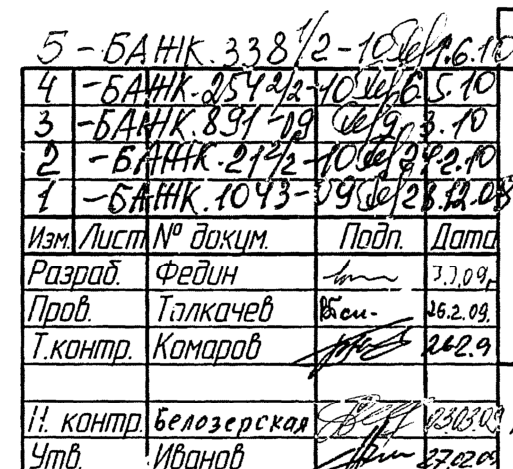 5 - БАЖК.338 1/2-10 1.6.10
4 - БАЖК.254 2/2-10 6.5.10
3 - БАЖК.891-09 9.3.10
2 - БАЖК.21 2/2-10 24.2.10
1 - БАЖК.1043-09 28.12.09
Изм. Лист № докум. Подп. Дата
Разраб. Федин
Пров. Толкачев 26.2.09.
Т.контр. Комаров 26.2.9
Н. контр. Белозерская 03.03.09
Утв. Иванов 27.02.09